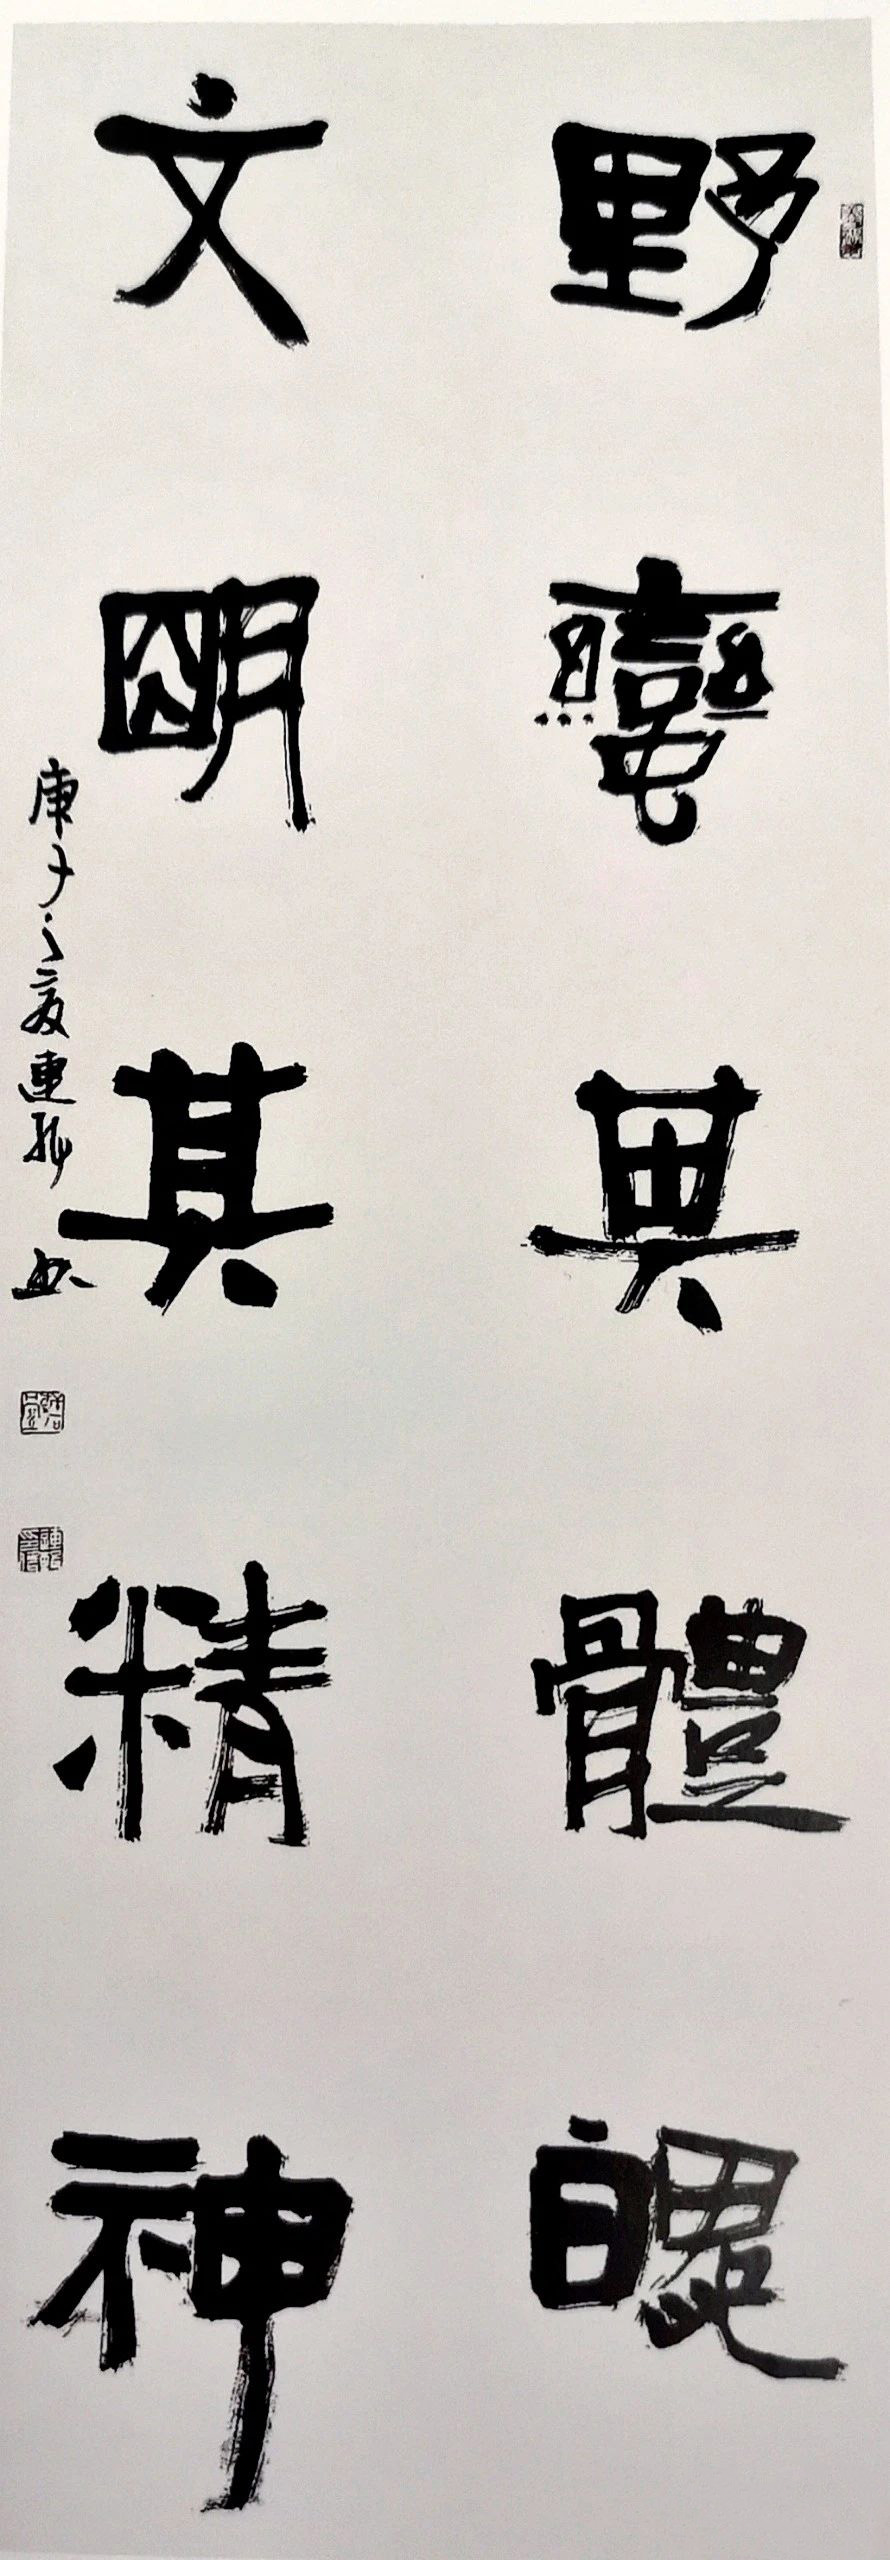 野蠻其體魄
文明其精神
庚子之夏連書